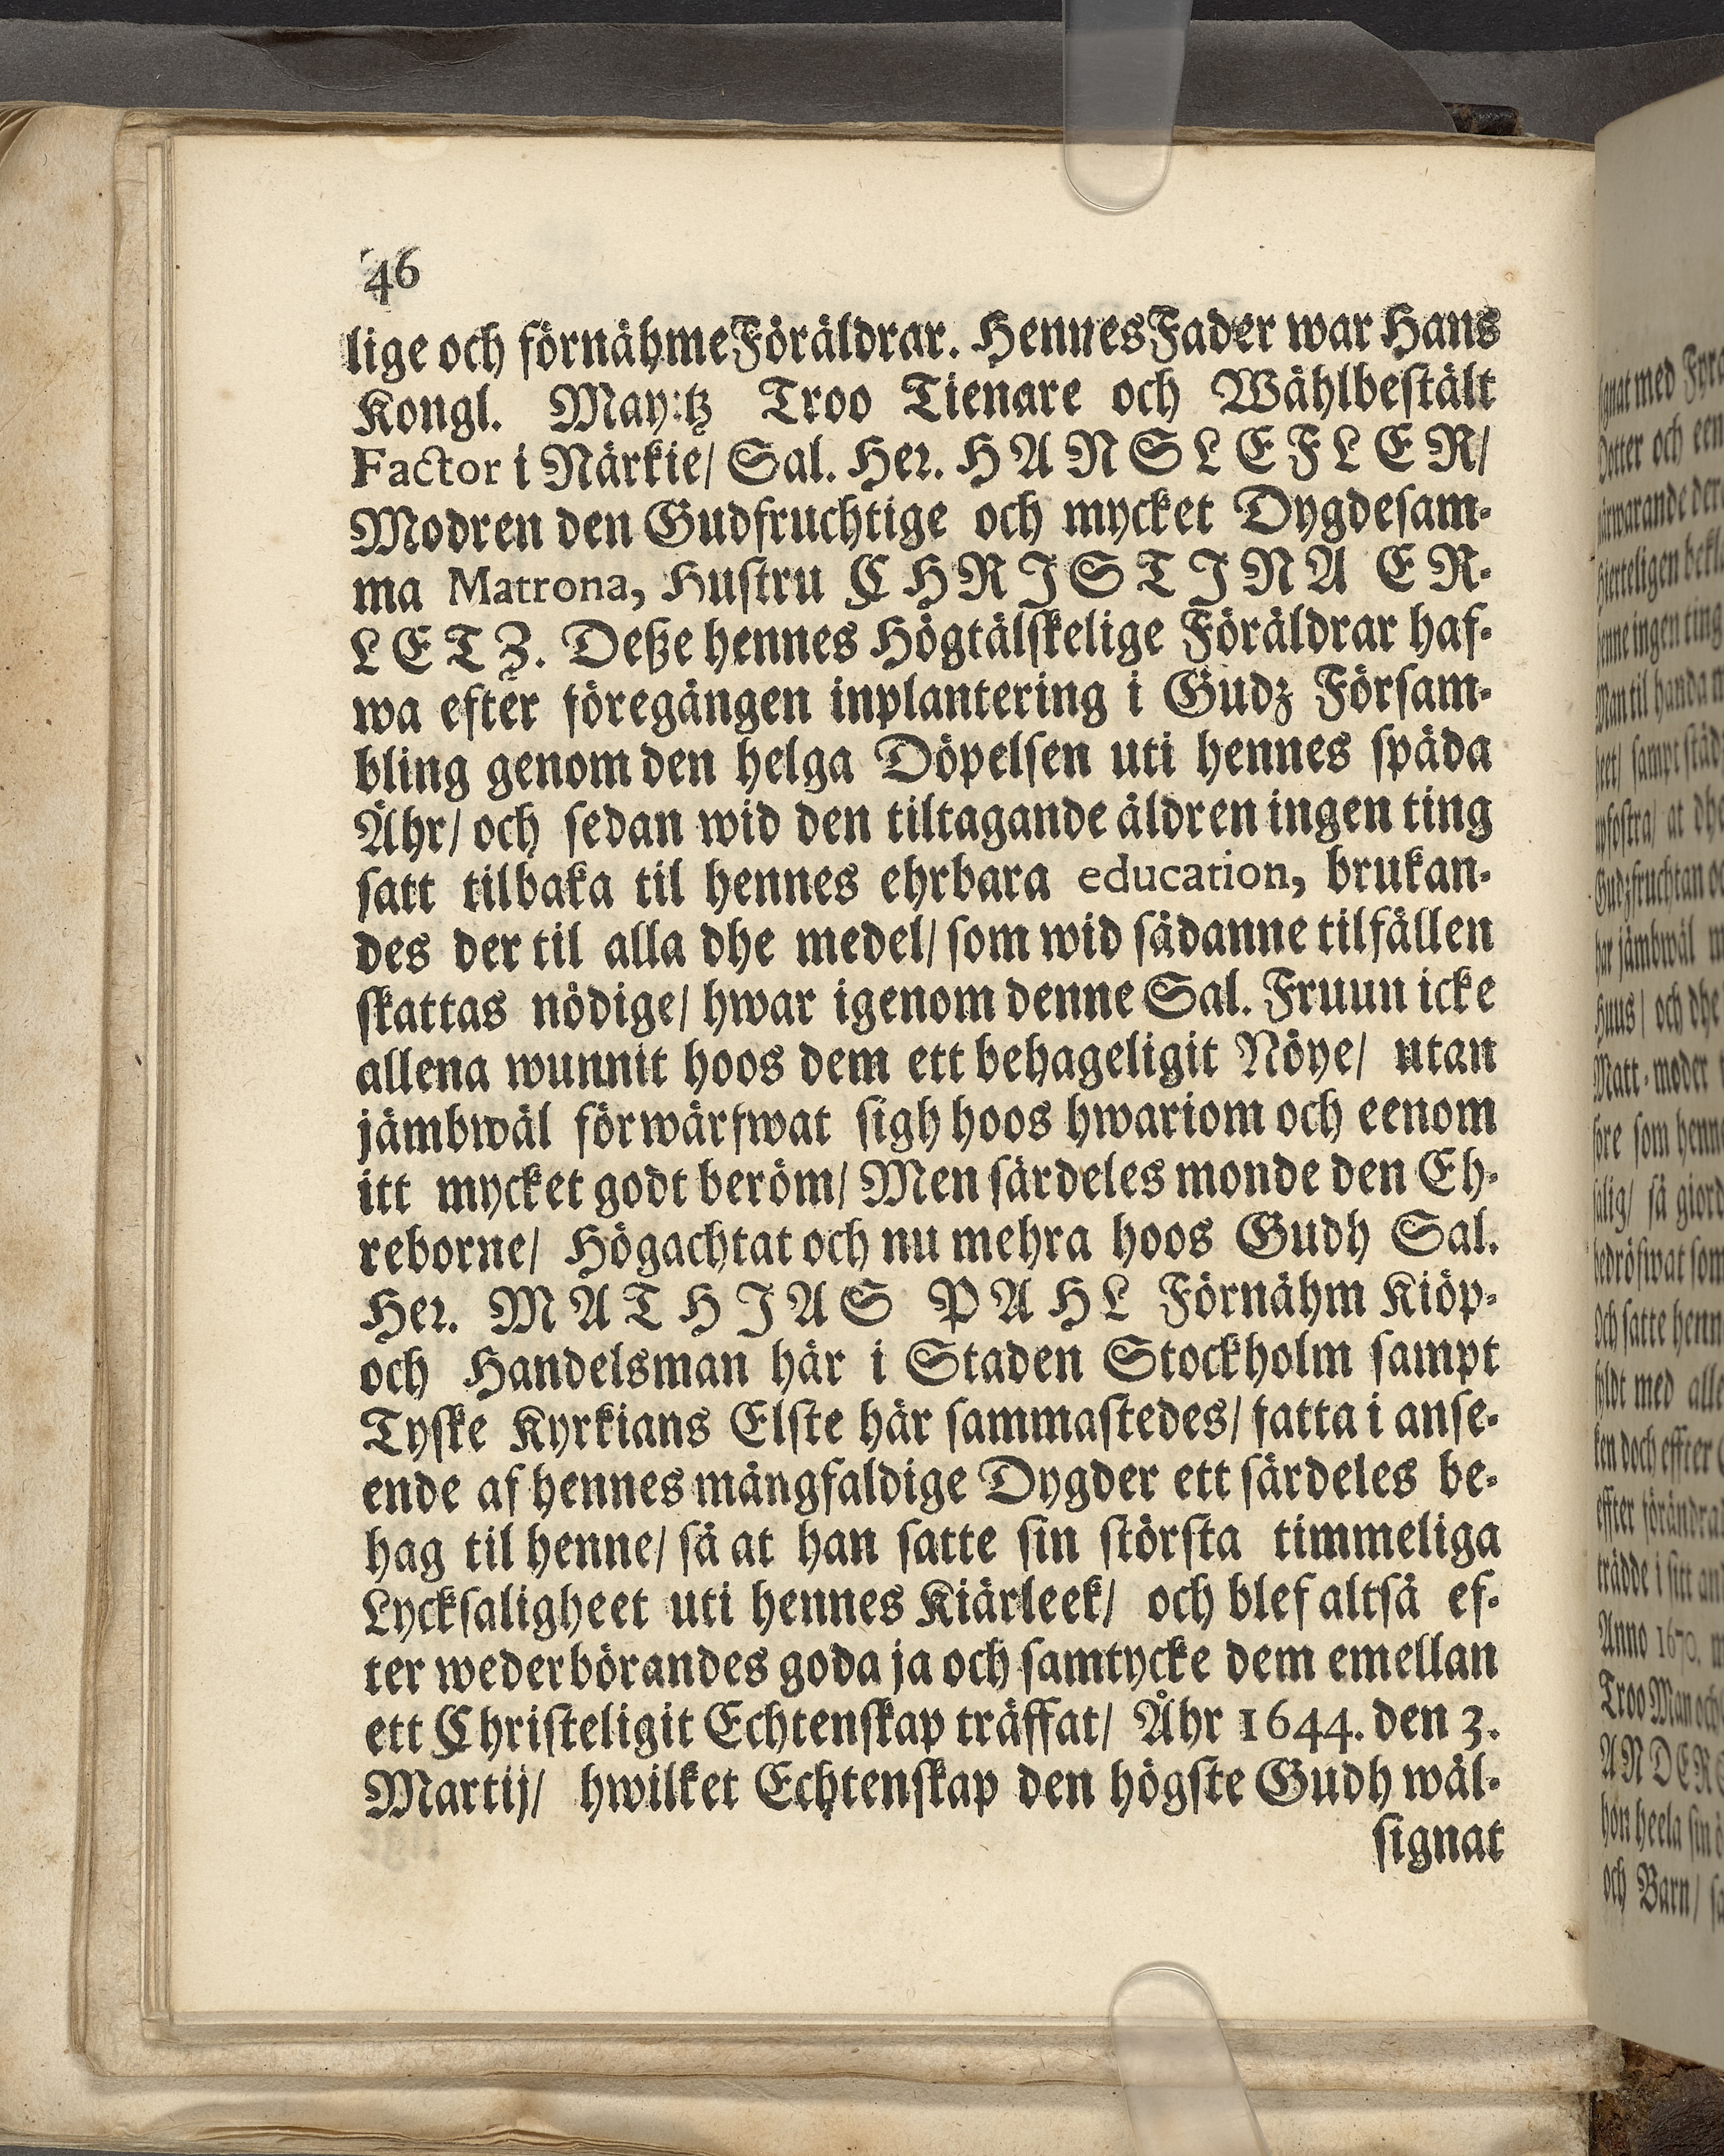 46
lige och förnähme Föräldrar. Hennes Fader war Hans
Kongl. May:tz Troo Tienare och Wählbestält
Factor i Närkie/ Sal. Her. HANS LEFLER/
Modren den Gudfruchtige och mycket Dygdesam-
ma Matrona, Hustru CHRISTINA ER-
LETZ. Deße hennes Högtälskelige Föräldrar haf-
wa efter föregången inplantering i Gudz Försam-
bling genom den helga Döpelsen uti hennes späda
Åhr/ och sedan wid den tiltagande åldren ingen ting
satt tilbaka til hennes ehrbara education, brukan-
des der til alla dhe medel/ som wid sådanne tilfällen
skattas nödige/ hwar igenom denne Sal. Fruun icke
allena wunnit hoos dem ett behageligit Nöye/ utan
jämbwäl förwärfwat sigh hoos hwariom och eenom
itt mycket godt beröm/ Men särdeles monde den Eh-
reborne/ Högachtat och nu mehra hoos Gudh Sal.
Her. MATHIAS PAHL Förnähm Kiöp-
och Handelsman här i Staden Stockholm sampt
Tyske Kyrkians Elste här sammastedes/ fatta i anse-
ende af hennes mångfaldige Dygder ett särdeles be-
hag til henne/ så at han satte sin största timmeliga
Lycksaligheet uti hennes Kiärleek/ och blef altså ef-
ter wederbörandes goda ja och samtycke dem emellan
ett Christeligit Echtenskap träffat/ Åhr 1644. den 3.
Martij/ hwilket Echtenskap den högste Gudh wäl-
signat
gnat med Fyra
Dotter och een
hierteligen bekla
henne ingen ting
Man til handa
heet/ sampt städ
upfostra/ at dhe
Gudzfruchtan oc
har jämbwäl
Huus/ och dhe
Matt-moder
före som henne
salig/ så giord
bedröfwat som
Och satte henn
fyldt med alle
ken doch effter
effter förändra
trädde i sitt an
Anno 1670.
Troo Man och
ANDERS
hon heela sin
och Barn/